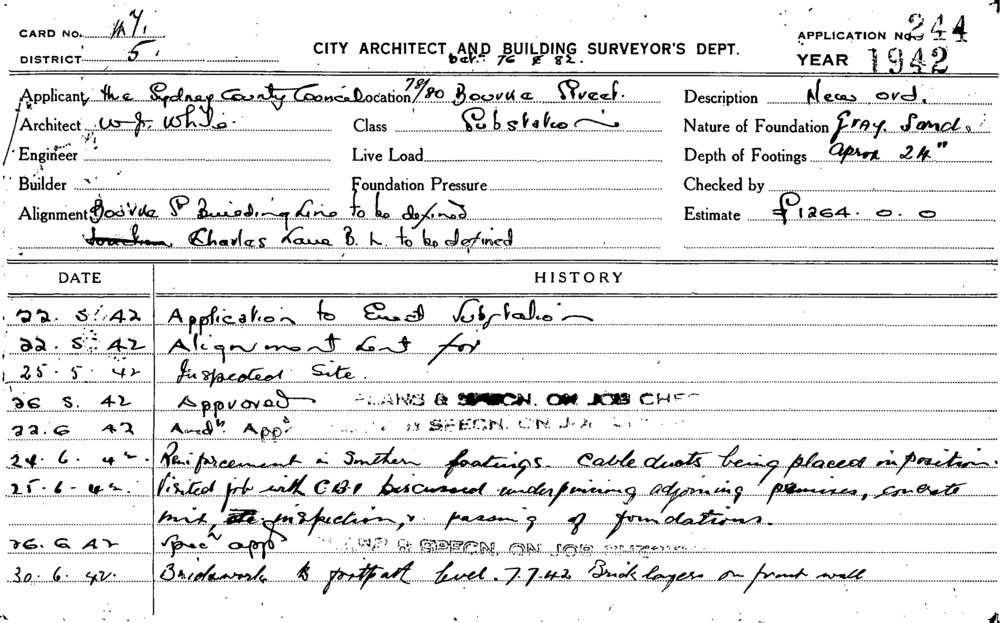 CARD No. M7.
DISTRICT 5.
CITY ARCHITECT AND BUILDING SURVEYOR'S DEPT.
bet. 76 & 82.
APPLICATION No. 244
YEAR 1942
Applicant The Sydney County Council Location 78/80 Bourke Street.
Description New ord.
Architect W. J. White. Class Substation
Nature of Foundation Gray. Sand.
Engineer Live Load
Depth of Footings Aprox 24"
Builder Foundation Pressure
Checked by
Alignment Bourke St Building Line to be defined
Estimate £1264. 0. 0
Charles Lane B. L. to be defined
DATE HISTORY
22. 5. 42 Application to Erect Substation
22. 5. 42 Alignment sent for
25. 5. 42 Inspected Site.
26 5. 42 Approved PLANS & SPECN. ON JOB CHEC
22. 6 42 Amdt. Appd. & SPECN. ON JOB
24. 6. 42. Reinforcement in Southern footings. Cable ducts being placed in position.
25-6-42. Visited job with CBI Discussed underpinning adjoining premises, concrete
mix, inspection, & passing of foundations.
26. 6 42 Specn appd PLANS & SPECN. ON JOB
30. 6. 42. Brickwork to footpath level. 7.7.42 Bricklayers on front wall